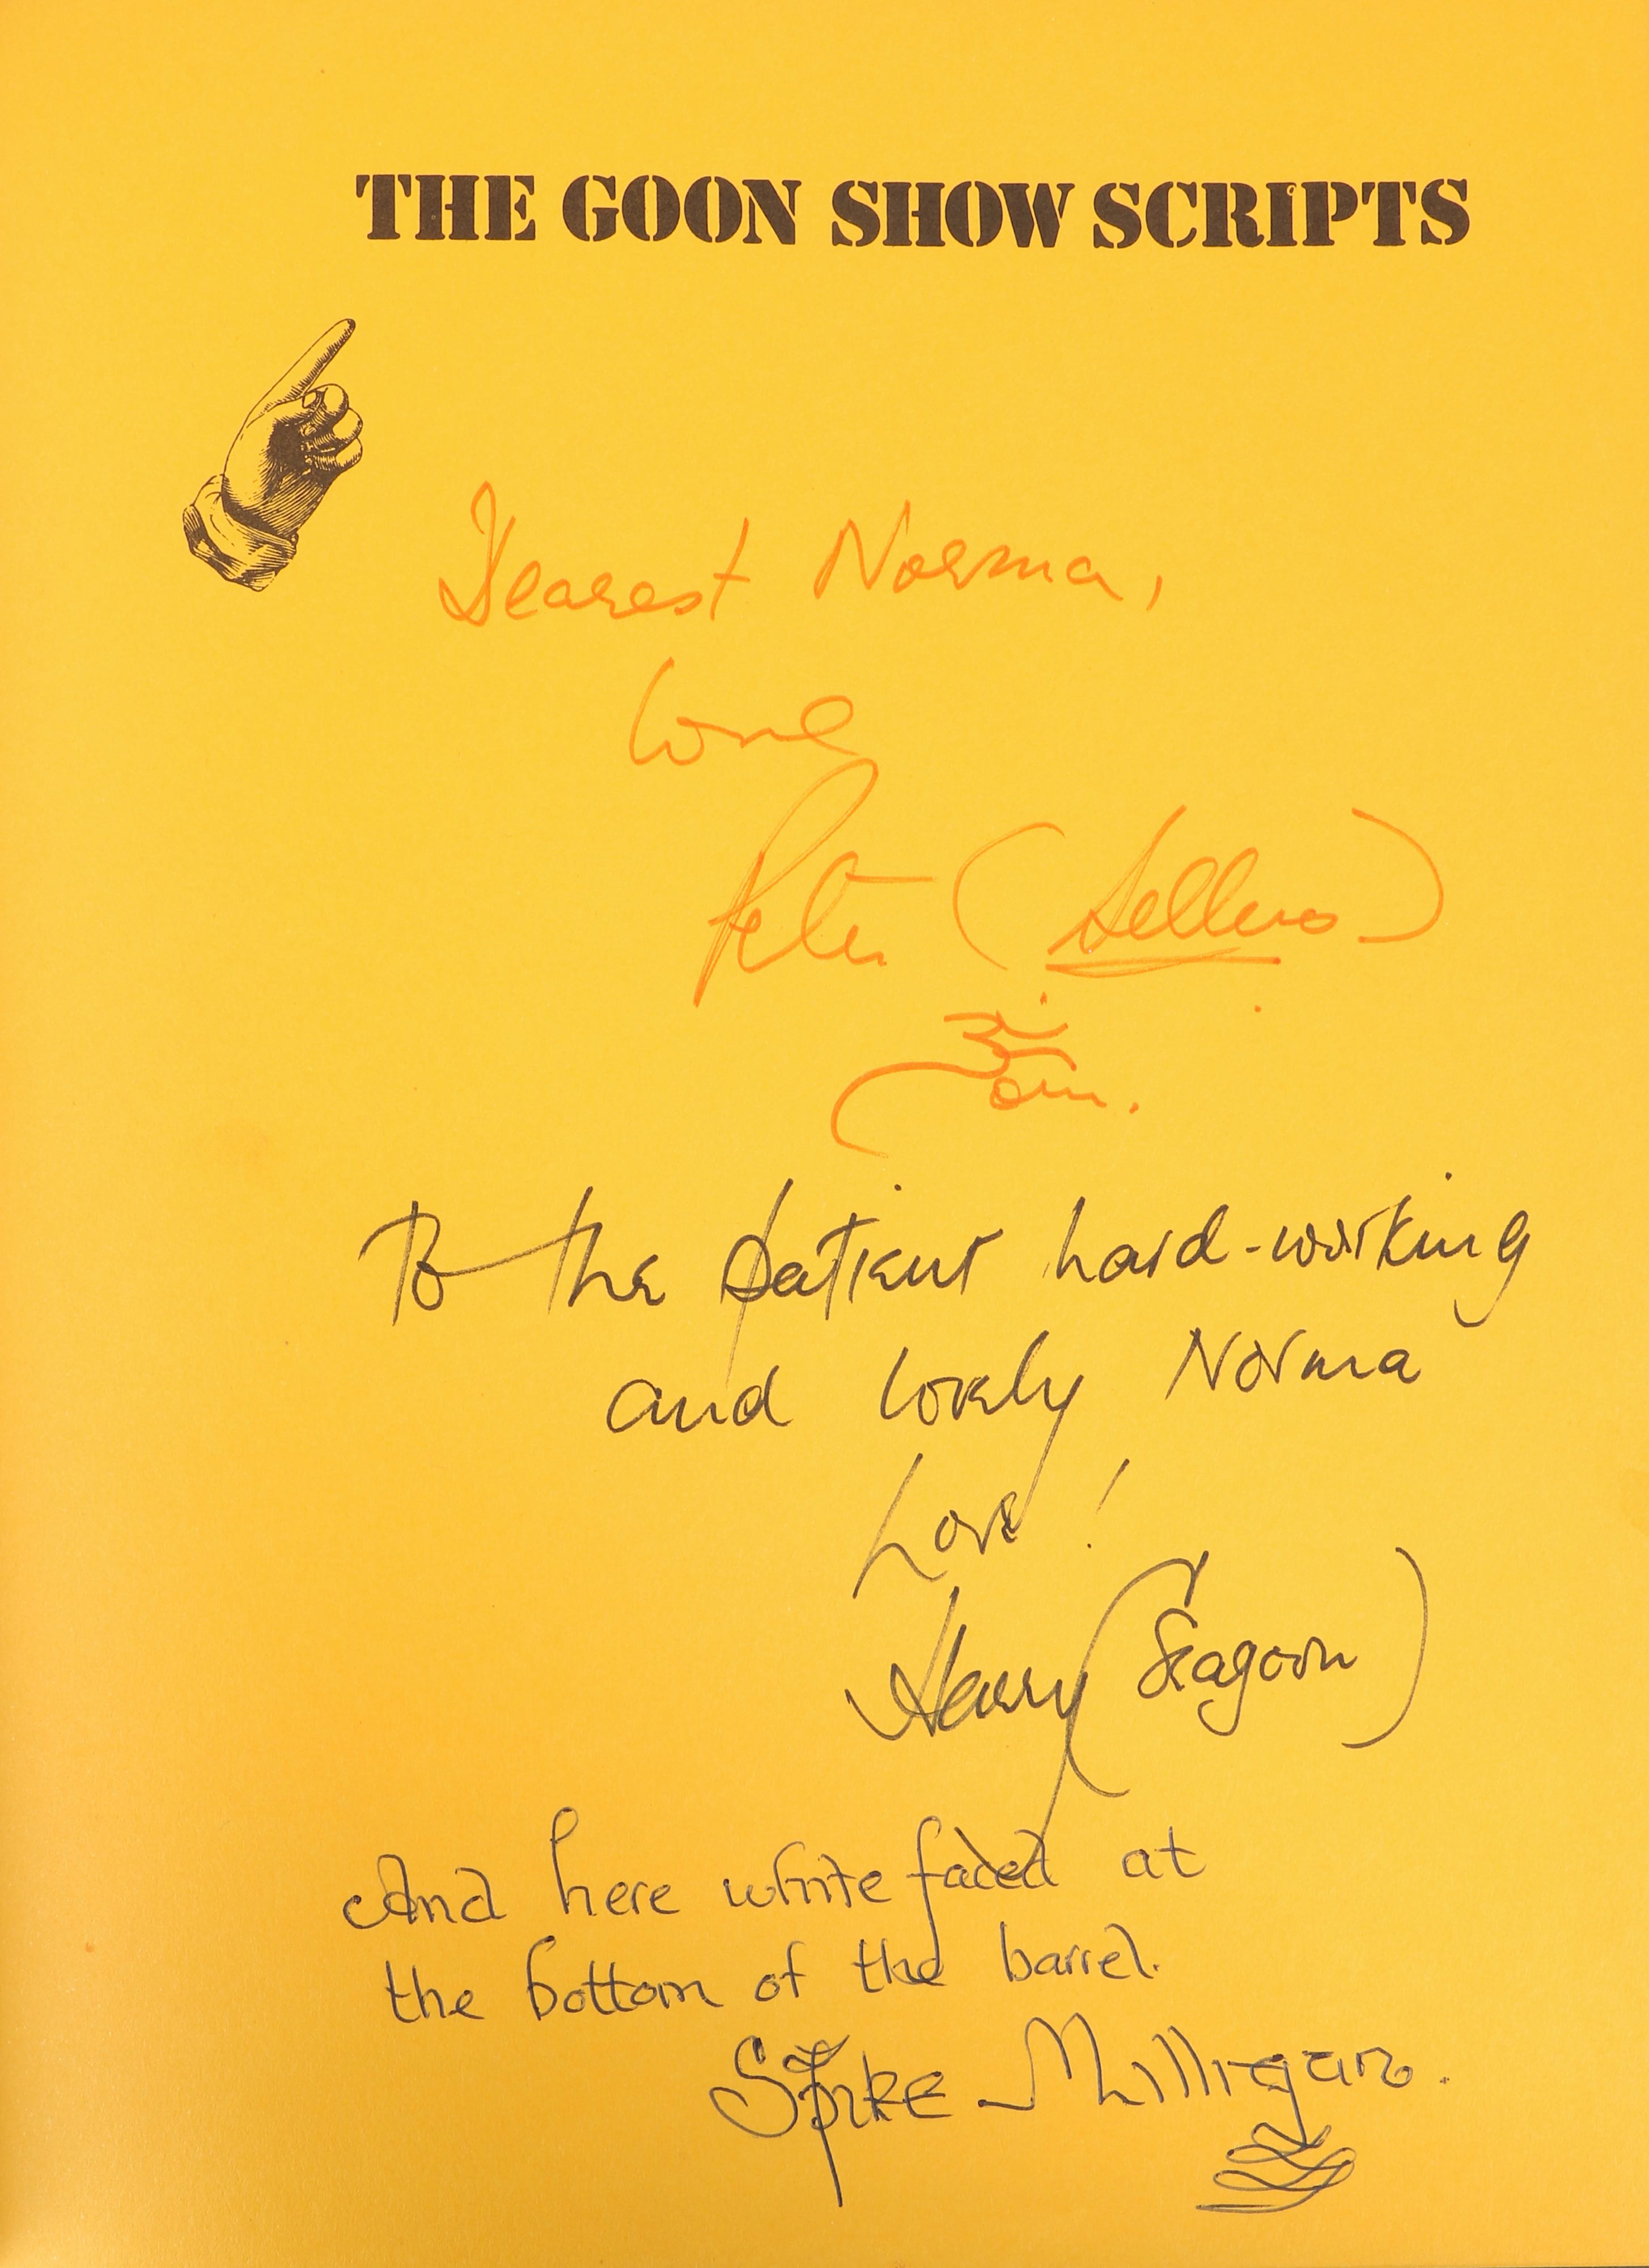 THE GOON SHOW SCRIPTS
Dearest Norma,
Love
Peter (Sellers)
To the patient hard-working
and lovely Norma
Love!
Harry (Seagoon)
And here white faced at
the bottom of the barrel.
Spike Milligan.